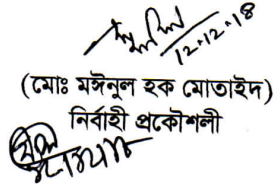 12.12.18
(মোঃ মঈনুল হক মোতাইদ)
নির্বাহী প্রকৌশলী